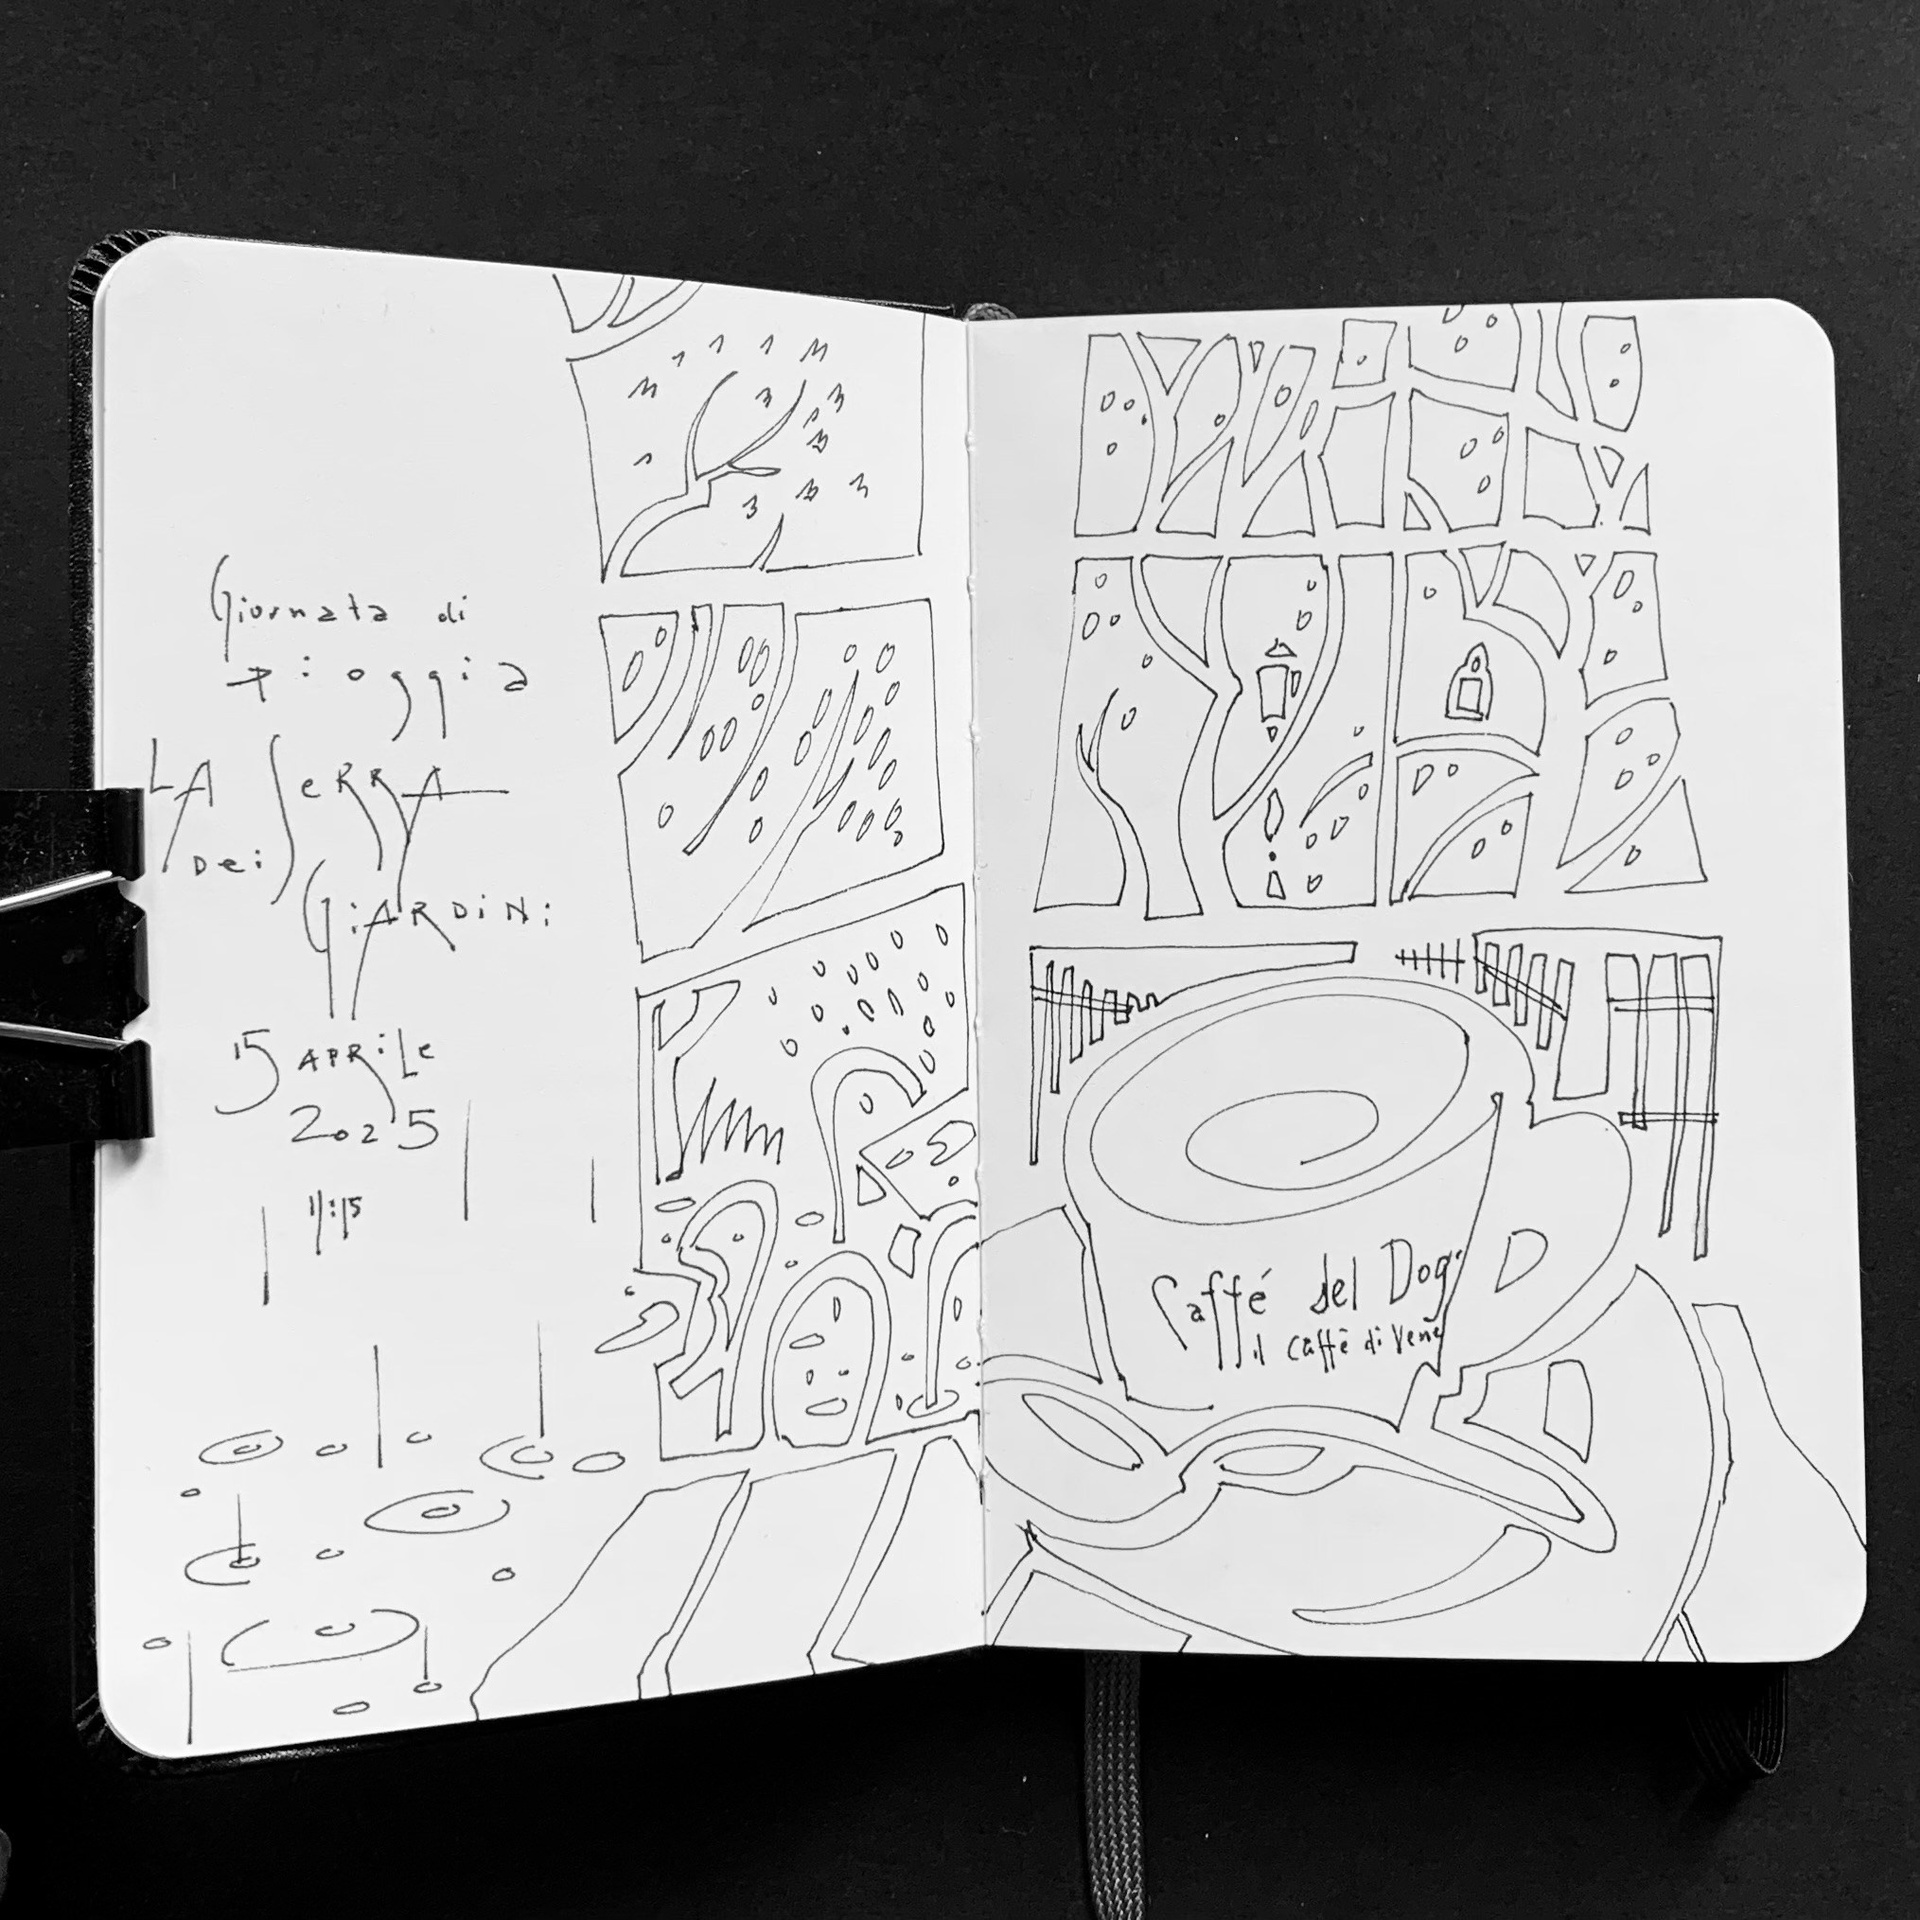 Giornata di
pioggia
LA SeRRA
Dei
GiARDiNi
15 APRiLe
2025
11:15
Caffé del Dog
il caffè di Vene